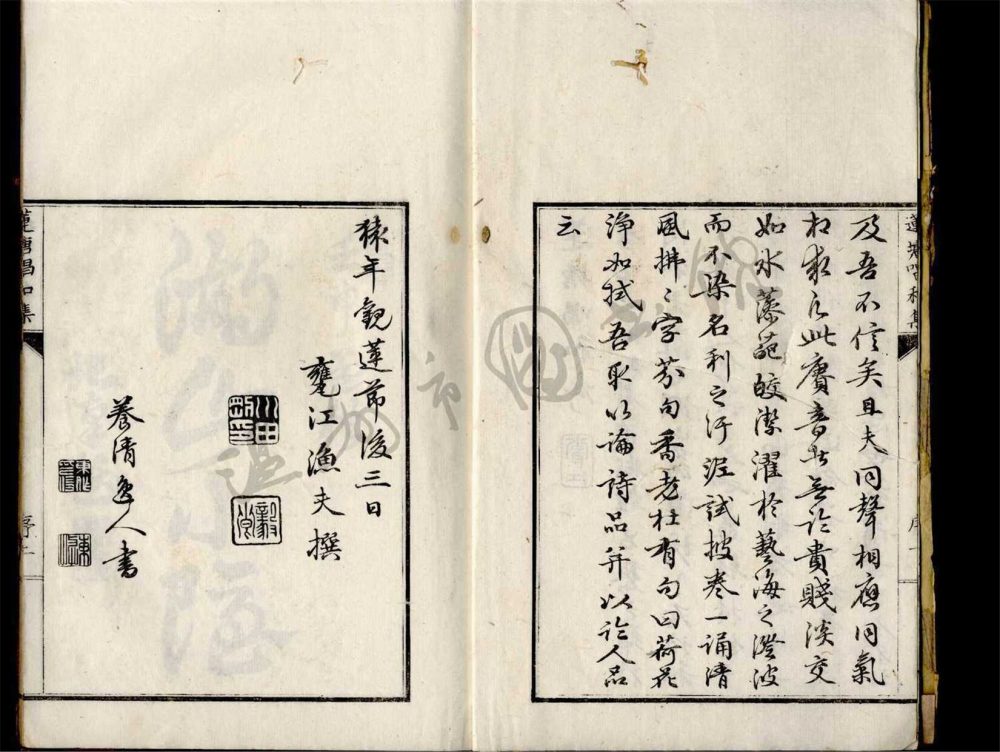 蓮塘唱和集
及吾不信矣且夫同聲相應同氣
相求凡此賡音者無論貴賤淡交
如水藻葩皎潔濯於藝海之澄波
而不染名利之汙泥試披卷一誦清
風拂〻字芬句香老杜有句曰荷花
淨如拭吾取以論詩品并以論人品
云
猿年觀蓮節後三日
甕江漁夫撰
川田剛印
毅卿
養清逸人書
蓮塘唱和集
序二
温州市圖書館